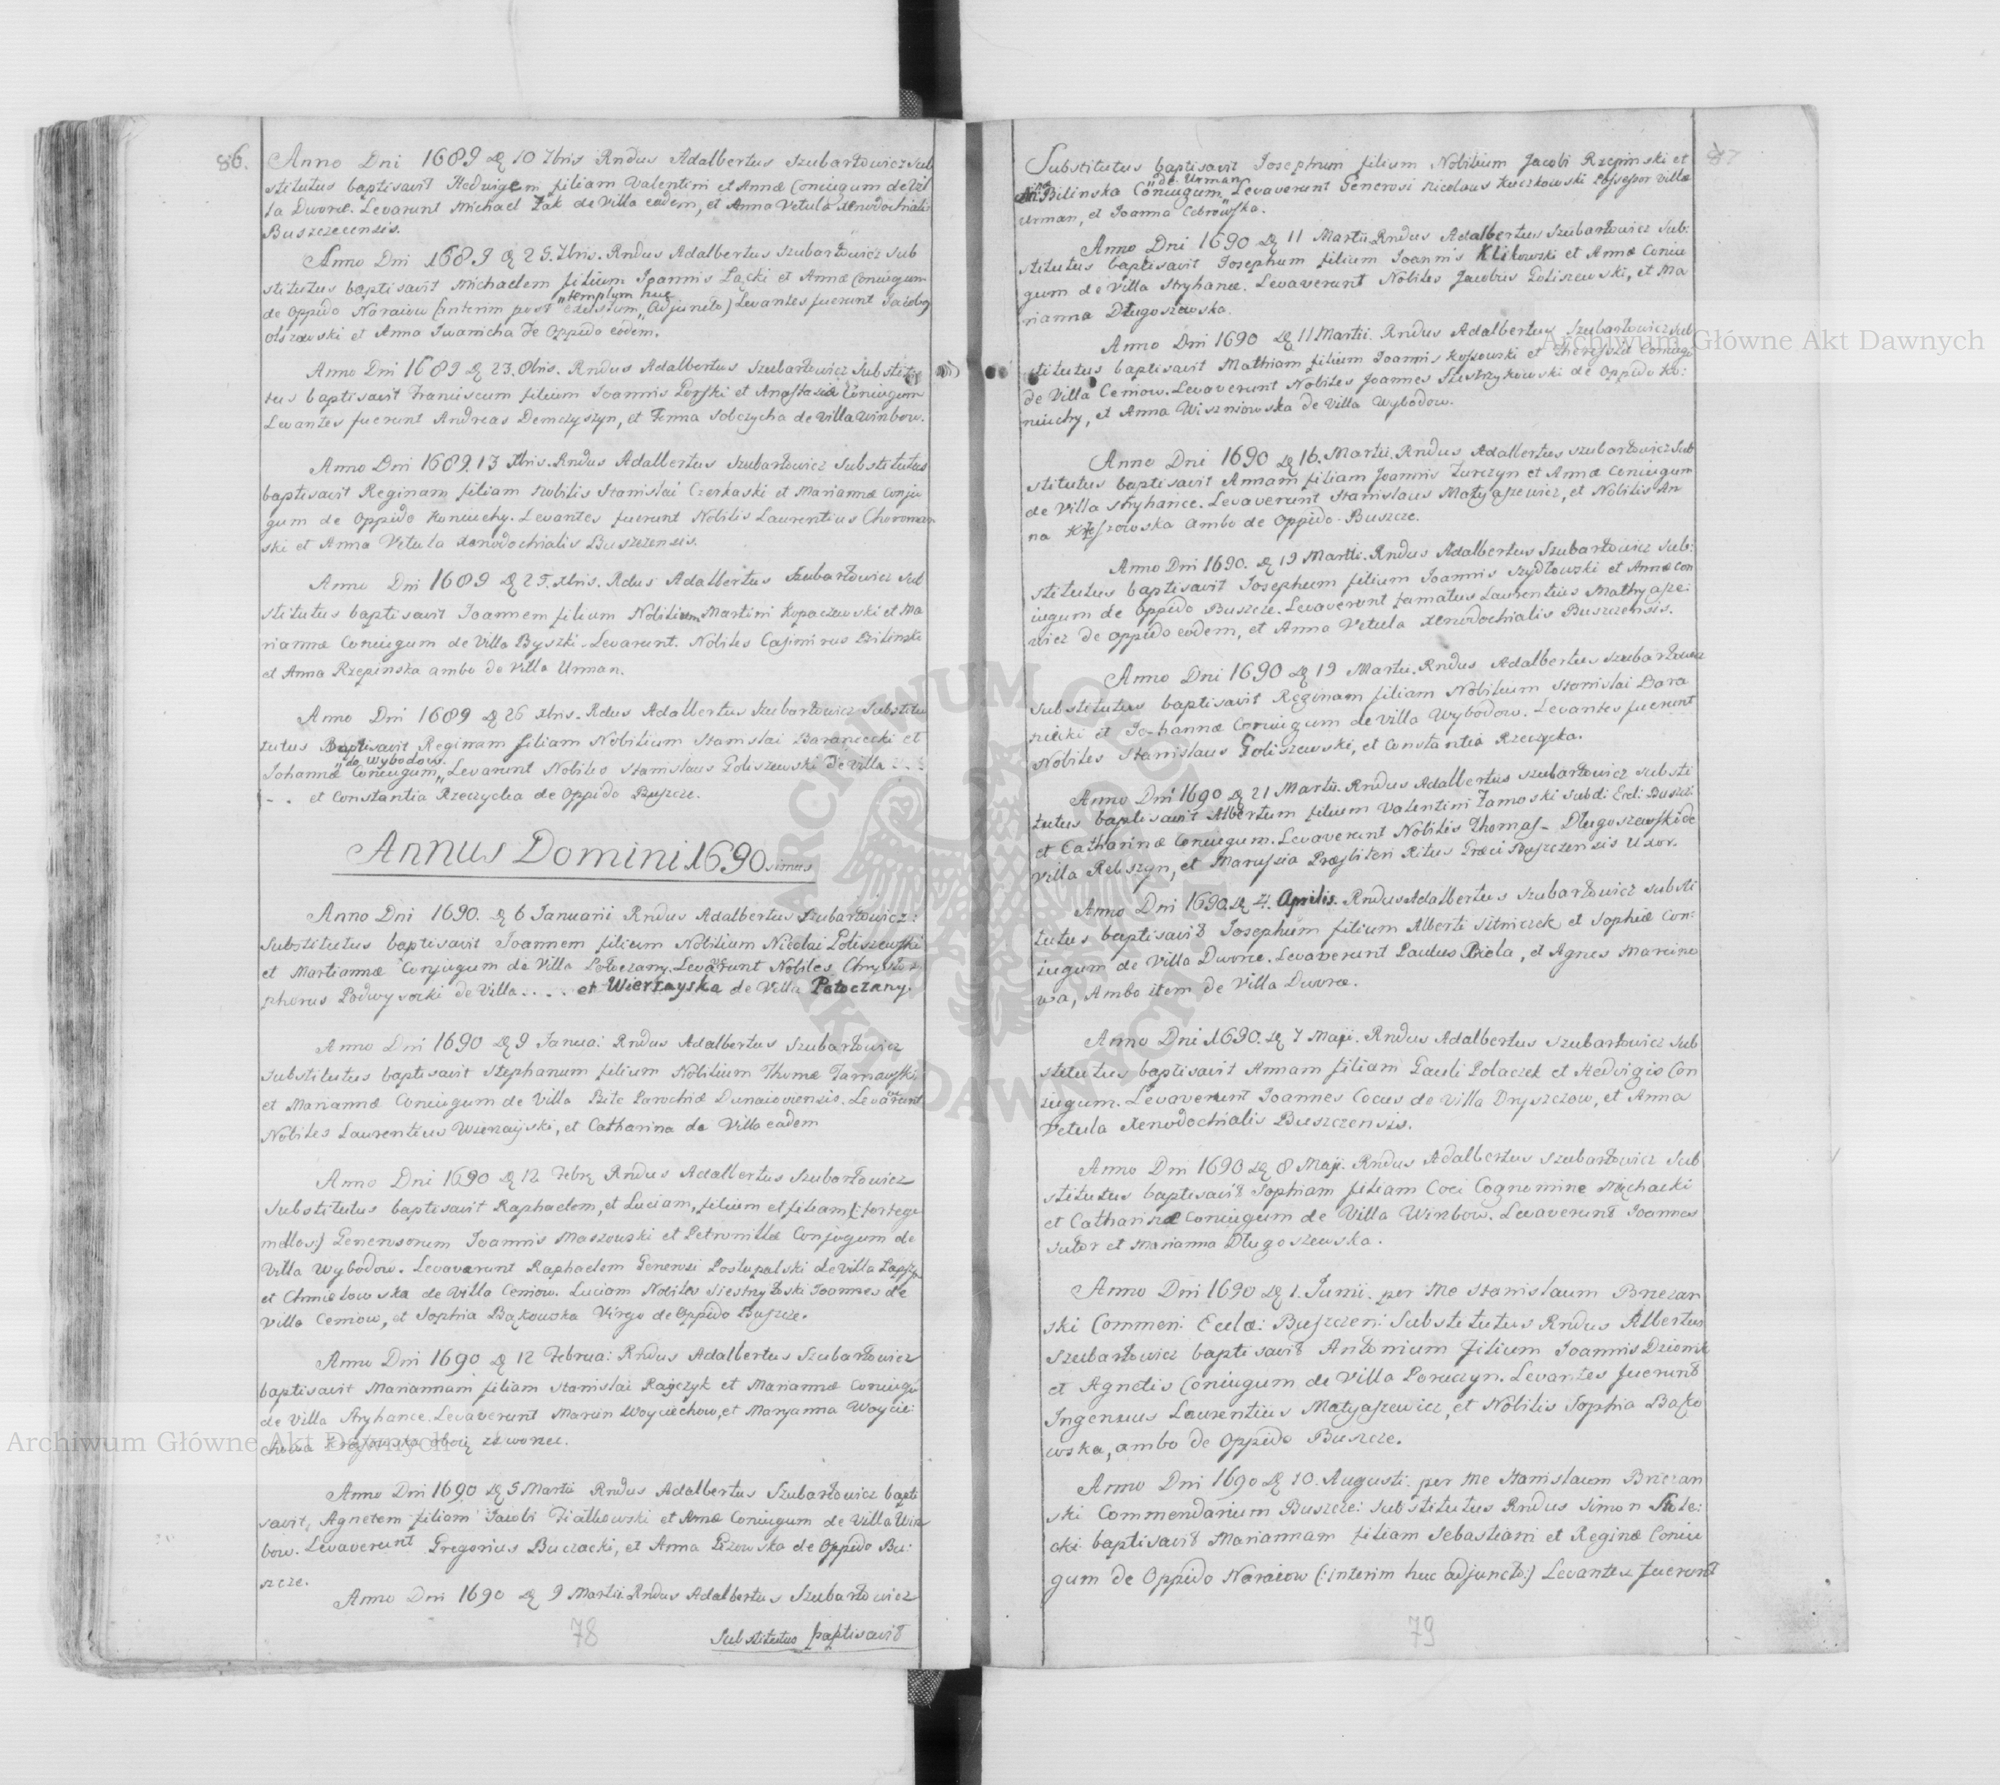 86.
Anno Dni 1689 dę 10 7bris Rndus Adalbertus Szubartowicz Sub
stitutus baptisavit Hedvigem filiam Valentini et Annæ Coniugum de Vil
la Dworce. Levarunt Michael Żak de Villa eadem, et Anna Vetula Xenodochialis
Buszczecensis.
Anno Dni 1689 dę 25. 7bris. Rndus Adalbertus Szubartowicz Sub
stitutus baptisavit Michaelem filium Joannis Łącki et Annæ Coniugum
de Oppido Naraiow (interim post exustum „templum huc„ Adjuncto) Levantes fuerunt Jacobus
Olszowski et Anna Iwanicha de Oppido eodem.
Anno Dni 1689 dę 23. 8bris. Rndus Adalbertus Szubartowicz Substitu
tus baptisavit Franciscum filium Joannis Porski et Anastasiæ Coniugum
Levantes fuerunt Andreas Demczyszyn, et Anna Sobczycha de Villa Winbow.
Anno Dni 1689. 13 Xbris. Rndus Adalbertus Szubartowicz Substitutus
baptisavit Reginam filiam Nobilis Stanislai Czerkaski et Mariannæ Conju
gum de Oppido Koniuchy. Levantes fuerunt Nobilis Laurentius Choroman
ski et Anna Vetula Xenodochialis Buszczensis.
Anno Dni 1689 dę 25. Xbris. Rdus Adalbertus Szubartowicz Sub
stitutus baptisavit Joannem filium Nobilium Martini Kopaczewski et Ma
riannæ Coniugum de Villa Byszki. Levarunt. Nobiles Casimirus Bilinski
et Anna Rzepinska ambo de Villa Urman.
Anno Dni 1689 dę 26 Xbris. Rdus Adalbertus Szubartowicz Substitu
tutus Baptisavit Reginam filiam Nobilium Stanislai Baraniecki et
Johannæ „de Wybodow. Coniugum„ Levarunt Nobiles Stanislaus Goliszewski de Villa . . .
- . et Constantia Rzeczycka de Oppido Buszcze.
Annus Domini 1690simus
Anno Dni 1690. dę 6 Januarii Rndus Adalbertus Szubartowicz:
Substitutus baptisavit Joannem filium Nobilium Nicolai Goliszewski
et Mariannæ Conjugum de Villa Potoczany. Levarunt Nobiles Chrysto
phorus Podwysocki de Villa . . . . et Wierzayska de Villa Potoczany.
Anno Dni 1690 dę 9 Janua: Rndus Adalbertus Szubartowicz
Substitutus baptisavit Stephanum filium Nobilium Thomæ Tarnawski
et Mariannæ Coniugum de Villa Bite Parochiæ Dunaioviensis. Levarunt
Nobiles Laurentius Wierzayski, et Catharina de Villa eadem
Anno Dni 1690 dę 12 Febrę Rndus Adalbertus Szubartowicz
Substitutus baptisavit Raphaelem, et Luciam, filium et filiam (: forte ge
mellos:) Generosorum Joannis Maszowski et Petronillæ Conjugum de
Villa Wybodow. Levaverunt Raphaelem Generosi Postupalski de Villa Łapszyn
et Chmielowska de Villa Ceniow. Luciam Nobiles Siestrzytoski Joannes de
Villa Ceniow, et Sophia Bąkowska Virgo de Oppido Buszcze.
Anno Dni 1690 dę 12 Februa: Rndus Adalbertus Szubartowicz
baptisavit Mariannam filiam Stanislai Rajczyk et Mariannæ Coniugu
de Villa Stryhance. Levaverunt Marcin Woyciechow, et Maryanna Woycie:
chowa
Anno Dni 1690 dę 5 Martii Rndus Adalbertus Szubartowicz bapti
savit, Agnetem filiam Jacobi Fiałkowski et Annæ Coniugum de Villa Win
bow. Levaverunt Gregorius Buczacki, et Anna Pizowska de Oppido Bu:
szcze.
Anno Dni 1690 dę 9 Martii Rndus Adalbertus Szubartowicz
Substitutus baptisavit
78
87
Substitutus baptisavit Josephum filium Nobilium Jacobi Rzepinski et
Bilinska Coniugum „de Urman„ Levaverunt Generosi Nicolaus Kuczkowski Possessor Villæ
Urman, et Joanna Cebrowska.
Anno Dni 1690 dę 11 Martii. Rndus Adalbertus Szubartowicz Sub:
stitutus baptisavit Josephum filium Joannis Klikowski et Annæ Coniu
gum de Villa Stryhance. Levaverunt Nobiles Jacobus Goliszewski, et Ma
rianna Długoszowska.
Anno Dni 1690 dę 11 Martii. Rndus Adalbertus Szubartowicz Sub
stitutus baptisavit Mathiam filium Joannis Kossowski et Theressiæ Coniugu
de Villa Ceniow. Levaverunt Nobiles Joannes Siestrzykowski de Oppido Ko:
niuchy, et Anna Wiszniowska de Villa Wybodow.
Anno Dni 1690 dę 16. Martii. Rndus Adalbertus Szubartowicz Sub
stitutus baptisavit Annam filiam Joannis Turczyn et Annæ Coniugum
de Villa Stryhance. Levaverunt Stanislaus Matyaszewicz, et Nobilis An
na Krassowska ambo de Oppido Buszcze.
Anno Dni 1690. dę 19 Martii. Rndus Adalbertus Szubartowicz Sub:
stitutus baptisavit Josephum filium Joannis Szydłowski et Annæ Con
iugum de Oppido Buszcze. Levaverunt famatus Laurentius Mathyasze:
wicz de Oppido eodem, et Anna Vetula Xenodochialis Buszczensis.
Anno Dni 1690 dę 19 Martii. Rndus Adalbertus Szubartowicz
Substitutus baptisavit Reginam filiam Nobilium Stanislai Bara
niecki et Johannæ Coniugum de Villa Wybodow. Levantes fuerunt
Nobiles Stanislaus Goliszewski, et Constantia Rzeczycka.
Anno Dni 1690 dę 21 Martii. Rndus Adalbertus Szubartowicz Substi
tutus baptisavit Albertum filium Valentini Zamoski Subdi: Eccl: Buszcz:
et Catharinæ Coniugum. Levaverunt Nobilis Thomas Długoszewski de
Villa Rebszyn, et Marussia Præsbiteri Ritus Græci Buszczensis Uxor.
Anno Dni 1690. dę 4. Aprilis. Rndus Adalbertus Szubartowicz Substi
tutus baptisavit Josephum filium Alberti Sitniczek et Sophiæ Con:
iugum de Villa Dworce. Levaverunt Paulus Biela, et Agnes Marcino
wa, Ambo item de Villa Dworce.
Anno Dni 1690. dę 7 Maji. Rndus Adalbertus Szubartowicz Sub
stitutus baptisavit Annam filiam Pauli Polaczek et Hedvigis Con
iugum. Levaverunt Joannes Cocus de Villa Dryszczow, et Anna
Vetula Xenodochialis Buszczensis.
Anno Dni 1690 dę 8 Maji. Rndus Adalbertus Szubartowicz Sub
stitutus baptisavit Sophiam filiam Coci Cognomine Michalki
et Catharinæ Coniugum de Villa Winbow. Levaverunt Joannes
Sutor et Marianna Długoszewska.
Anno Dni 1690 dę 1. Junii. per Me Stanislaum Brzezan
ski Commen: Ecclæ: Buszczen: Substitutus Rndus Albertus
Szubartowicz baptisavit Antonium filium Joannis Dzionik
et Agnetis Coniugum de Villa Poruczyn. Levantes fuerunt
Ingenuus Laurentius Matyaszewicz, et Nobilis Sophia Bąko
wska, ambo de Oppido Buszcze.
Anno Dni 1690 dę 10. Augusti. per Me Stanislaum Brzezan
ski Commendarium Buszcze: Substitutus Rndus Simon
cki baptisavit Mariannam filiam Sebastiani et Reginæ Coniu
gum de Oppido Naraiow (: interim huc adjuncto:) Levantes fuerunt
79
Archiwum Główne Akt Dawnych
Archiwum Główne Akt Dawnych
ARCHIWUM GŁÓWNE AKT DAWNYCH